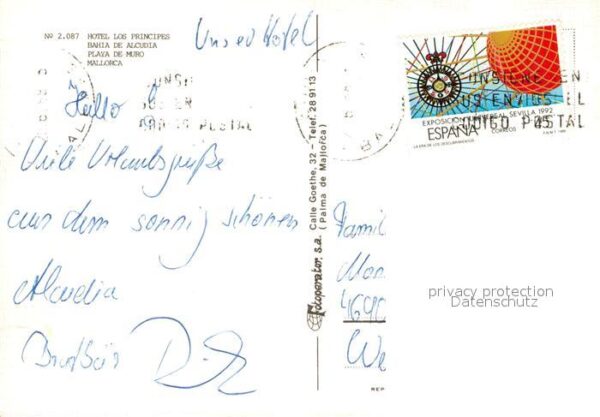 Nº 2.087 HOTEL LOS PRINCIPES
BAHIA DE ALCUDIA
PLAYA DE MURO
MALLORCA
Unser Hotel
Hallo
Viele Urlaubsgrüße
aus dem sonnig schönen
Alcudia
Fotoperator, s.a. Calle Goethe, 32 - Telef. 28 91 13
(Palma de Mallorca)
EXPOSICION UNIVERSAL SEVILLA 1992
ESPAÑA CORREOS 45
LA ERA DE LOS DESCUBRIMIENTOS
CODIGO POSTAL
Famil
469
We
REP
privacy protection
Datenschutz